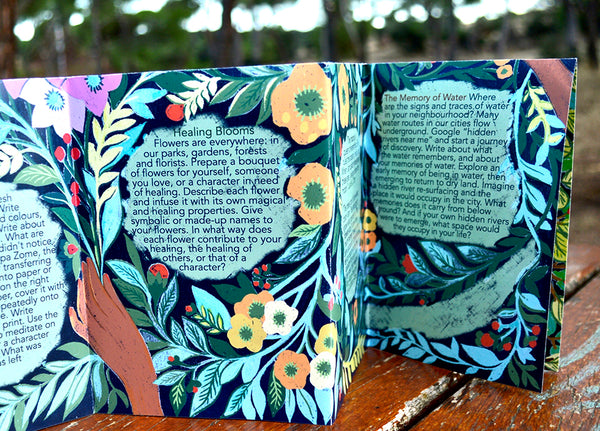 esh
Write
colours,
Write about
What are
didn't notice,
pa Zome, the
transferrin
to paper or
on the right
per, cover it with
epeatedly onto
Write
print. Use the
to meditate on
r a character
What was
left
Healing Blooms
Flowers are everywhere: in
our parks, gardens, forests
and florists. Prepare a bouquet
of flowers for yourself, someone
you love, or a character in need
of healing. Describe each flower
and infuse it with its own magical
and healing properties. Give
symbolic or made-up names to
your flowers. In what way does
each flower contribute to your
healing, the healing of
others, or that of a
character?
The Memory of Water Where
are the signs and traces of water
in your neighbourhood? Many
water routes in our cities flow
underground. Google "hidden
rivers near me" and start a journey
of discovery. Write about what
the water remembers, and about
memories of water. Explore an
early memory of being in water, then
emerging to return to dry land. Imagine
a hidden river re-surfacing and the
space it would occupy in the city. What
memories does it carry from below
ground? And if your own hidden rivers
were to emerge, what space would
they occupy in your life?